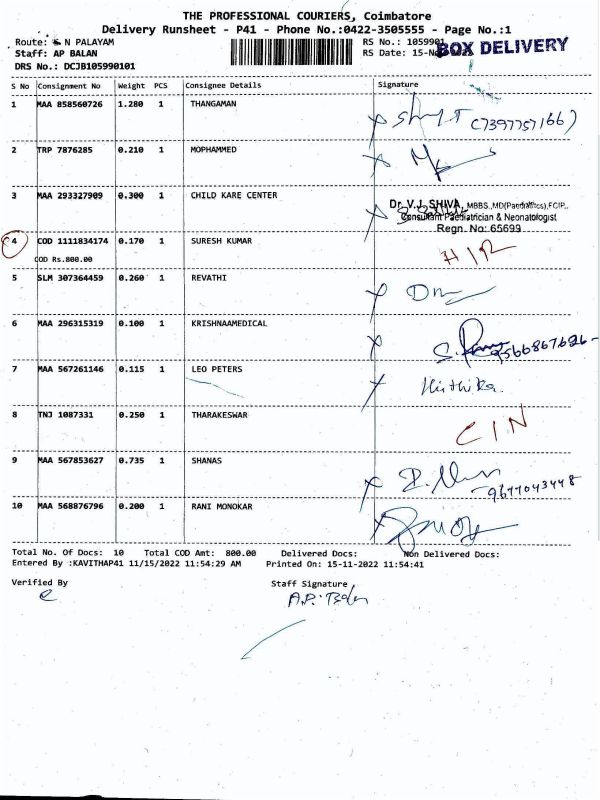 THE PROFESSIONAL COURIERS, Coimbatore
Delivery Runsheet - P41 - Phone No.:0422-3505555 - Page No.:1
Route: K N PALAYAM
RS No.: 1059901
BOX DELIVERY
Staff: AP BALAN
RS Date: 15-Nov-2022
DRS No.: DCJB105990101
S No Consignment No Weight PCS Consignee Details Signature
1 MAA 858560726 1.280 1 THANGAMAN
(7397757166)
2 TRP 7876285 0.210 1 MOPHAMMED
3 MAA 293327909 0.300 1 CHILD KARE CENTER
Dr. V.J. SHIVA, MBBS.,MD(Paediatrics),FCIP.,
Consultant Paediatrician & Neonatologist
Regn. No: 65699
4 COD 1111834174 0.170 1 SURESH KUMAR
COD Rs.800.00
5 SLM 307364459 0.260 1 REVATHI
6 MAA 296315319 0.100 1 KRISHNAAMEDICAL
7 MAA 567261146 0.115 1 LEO PETERS
Kiithika.
8 TNJ 1087331 0.250 1 THARAKESWAR
C/N
9 MAA 567853627 0.735 1 SHANAS
9677043448
10 MAA 568876796 0.200 1 RANI MONOKAR
Total No. Of Docs: 10 Total COD Amt: 800.00 Delivered Docs: Non Delivered Docs:
Entered By :KAVITHAP41 11/15/2022 11:54:29 AM Printed On: 15-11-2022 11:54:41
Verified By Staff Signature
A.P. Balan